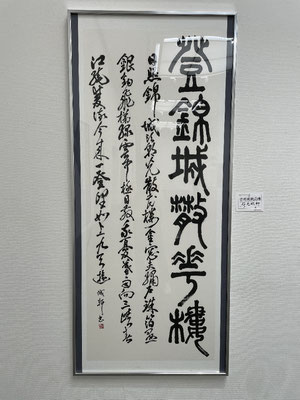 登錦城散花樓
日照錦城頭朝光散花樓金窗夾繡戶珠箔懸
銀鉤飛梯綠雲中極目散我憂暮雨向三峽春
江繞雙流今來一登望如上九天遊